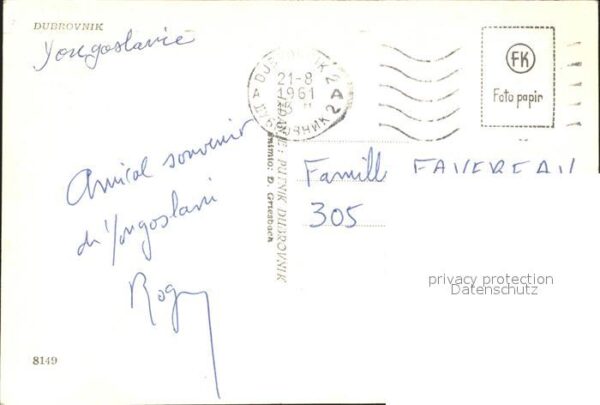 DUBROVNIK
Yougoslavie
DUBROVNIK 2
21-8
1961
A A
ДУБРОВНИК 2
FK
Foto papir
PUTNIK DUBROVNIK
Snimio: D. Griesbach
Amical souvenir
de Yougoslavie
Roger
Famille FAVEREAU
305
privacy protection
Datenschutz
8149